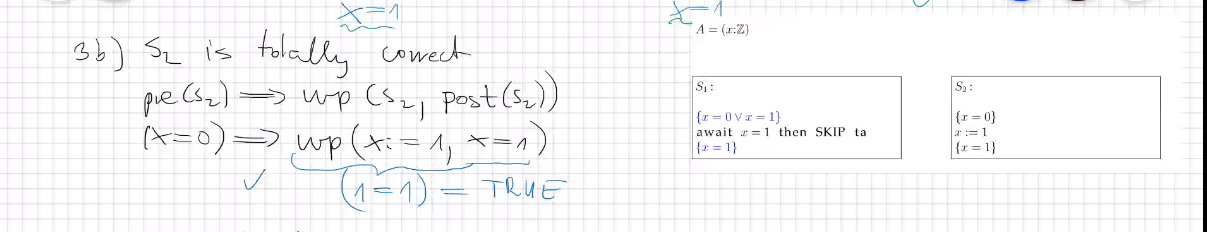 x=1
x=1
3b) S₂ is totally correct
pre(S₂) ⟹ wp(S₂, post(S₂))
(x=0) ⟹ wp(x:=1, x=1)
✓ (1=1) = TRUE
A = (x:ℤ)
S₁ :
{x = 0 ∨ x = 1}
await x = 1 then SKIP ta
{x = 1}
S₂ :
{x = 0}
x := 1
{x = 1}